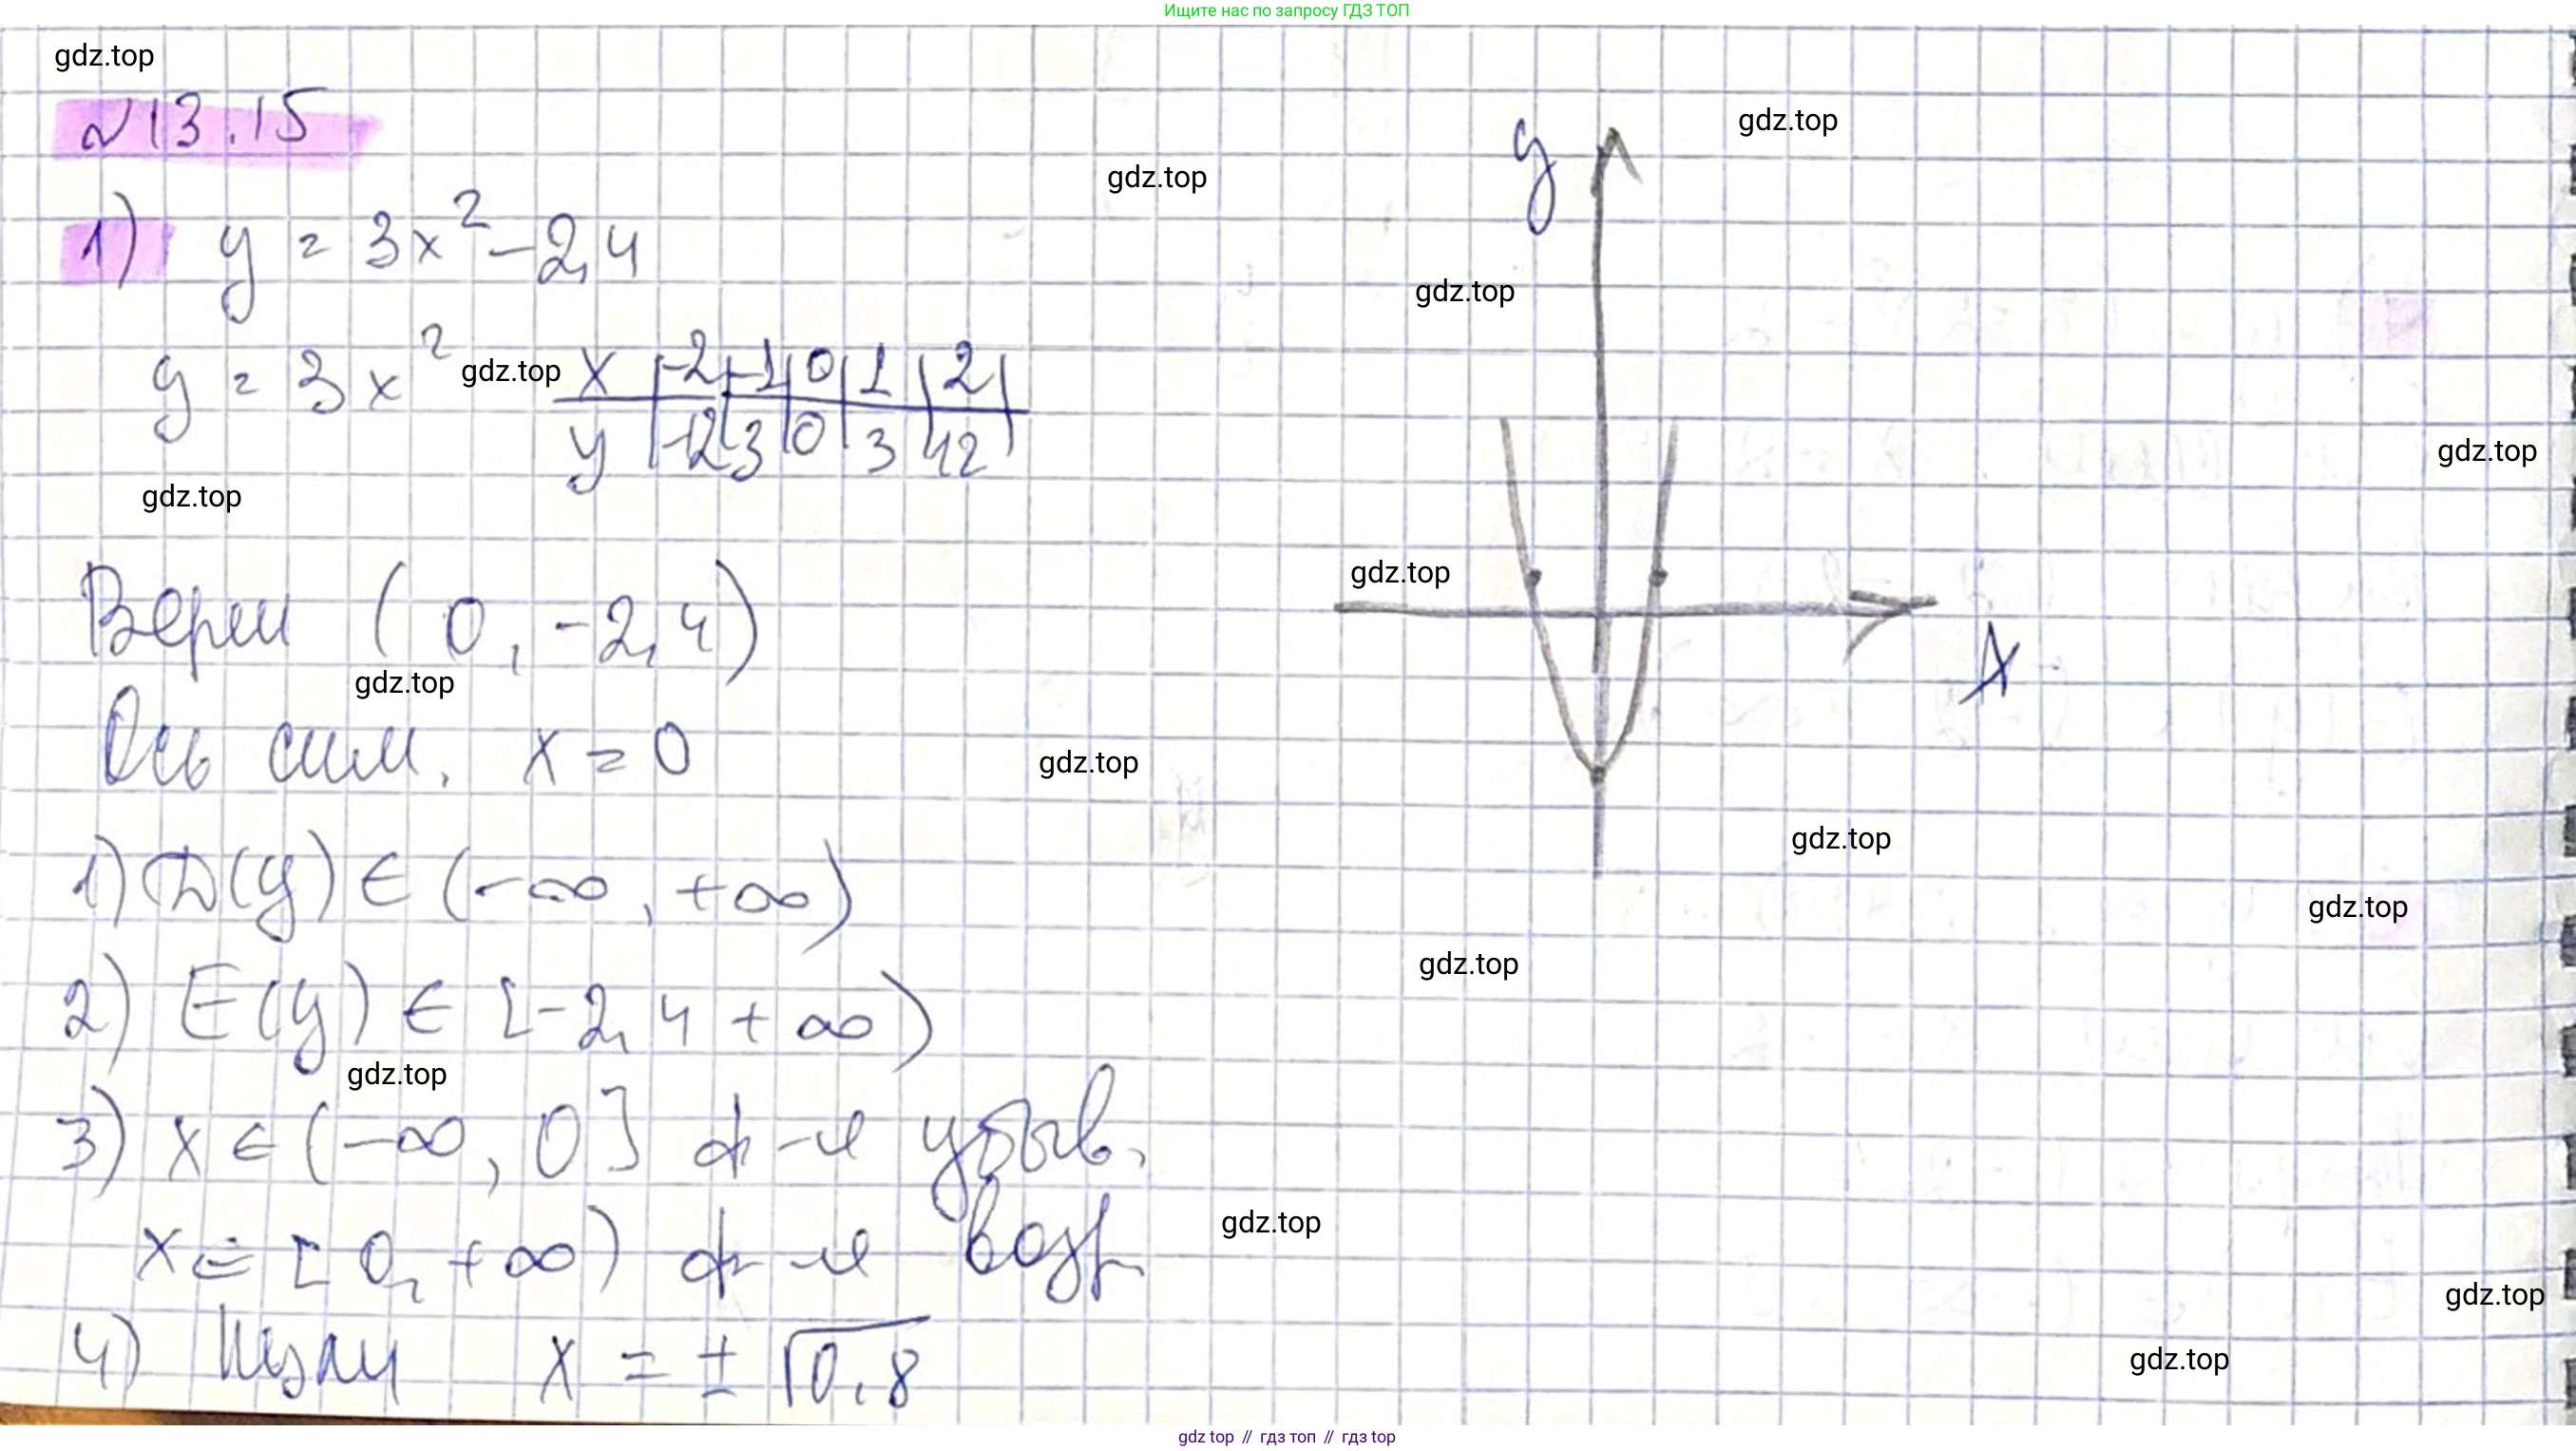 Ищите нас по запросу ГДЗ ТОП
gdz.top
№13.15
gdz.top
y
gdz.top
1) y = 3x²-2,4
gdz.top
y = 3x²
gdz.top
x | -2 | -1 | 0 | 1 | 2 |
y | 12 | 3 | 0 | 3 | 12
gdz.top
gdz.top
gdz.top
Верш (0, -2,4)
x
gdz.top
Ось сим. x = 0
gdz.top
gdz.top
1) D(y) ∈ (-∞, +∞)
gdz.top
gdz.top
2) E(y) ∈ [-2,4 +∞)
gdz.top
3) x ∈ (-∞, 0] ф-я убыв.
x ∈ [0, +∞) ф-я возр
gdz.top
gdz.top
4) Нули x = ± √0,8
gdz.top
gdz top // гдз топ // гдз top